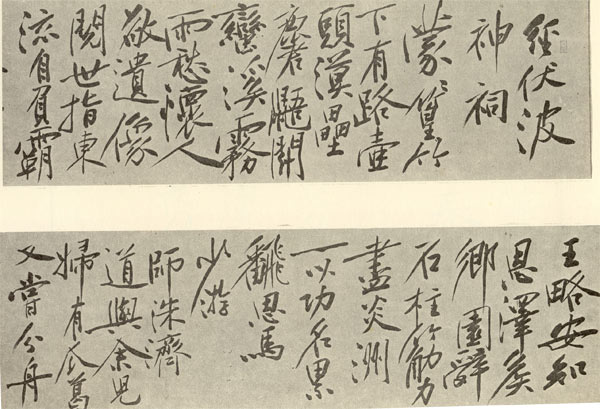 經伏波
神祠
蒙〻篁竹
下有路壺
頭漢壘
麏鼯鬭
蠻溪霧
雨愁懷人
敬遺像
閱世指東
流自負霸
王略安知
恩澤侯
鄉園辭
石柱筋力
盡炎洲
一以功名累
翻思馬
少游
師洙濟
道與余兒
婦有瓜葛
又嘗分舟